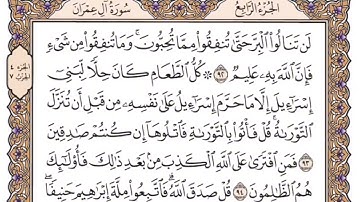 الجزء الرابع سورة آل عمران
لَن تَنَالُوا۟ ٱلْبِرَّ حَتَّىٰ تُنفِقُوا۟ مِمَّا تُحِبُّونَ ۚ وَمَا تُنفِقُوا۟ مِن شَىْءٍ
فَإِنَّ ٱللَّهَ بِهِۦ عَلِيمٌ ٩٢ ۞ كُلُّ ٱلطَّعَامِ كَانَ حِلًّا لِّبَنِىٓ
إِسْرَٰٓءِيلَ إِلَّا مَا حَرَّمَ إِسْرَٰٓءِيلُ عَلَىٰ نَفْسِهِۦ مِن قَبْلِ أَن تُنَزَّلَ
ٱلتَّوْرَىٰةُ ۗ قُلْ فَأْتُوا۟ بِٱلتَّوْرَىٰةِ فَٱتْلُوهَآ إِن كُنتُمْ صَٰدِقِينَ
٩٣ فَمَنِ ٱفْتَرَىٰ عَلَى ٱللَّهِ ٱلْكَذِبَ مِنۢ بَعْدِ ذَٰلِكَ فَأُو۟لَٰٓئِكَ
هُمُ ٱلظَّٰلِمُونَ ٩٤ قُلْ صَدَقَ ٱللَّهُ ۗ فَٱتَّبِعُوا۟ مِلَّةَ إِبْرَٰهِيمَ حَنِيفًا ۖ
الجزء ٤
الحزب ٧